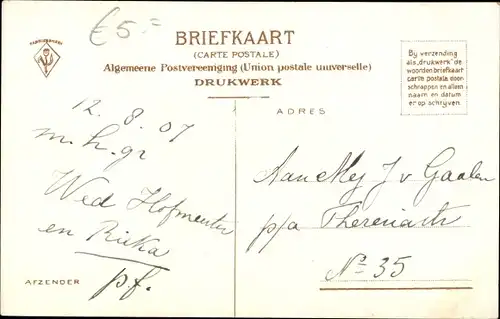 €5.=
BRIEFKAART
(CARTE POSTALE)
Algemeene Postvereeniging (Union postale universelle)
DRUKWERK
By verzending
als „drukwerk” de
woorden briefkaart
carte postale door-
schrappen en alleen
naam en datum
er op schrijven.
ADRES
12. 8. 07
m.h.gr
Wed Hofmeester
en Rika
p.f.
AFZENDER
Aan Mej J v Gaalen
p/a
No 35